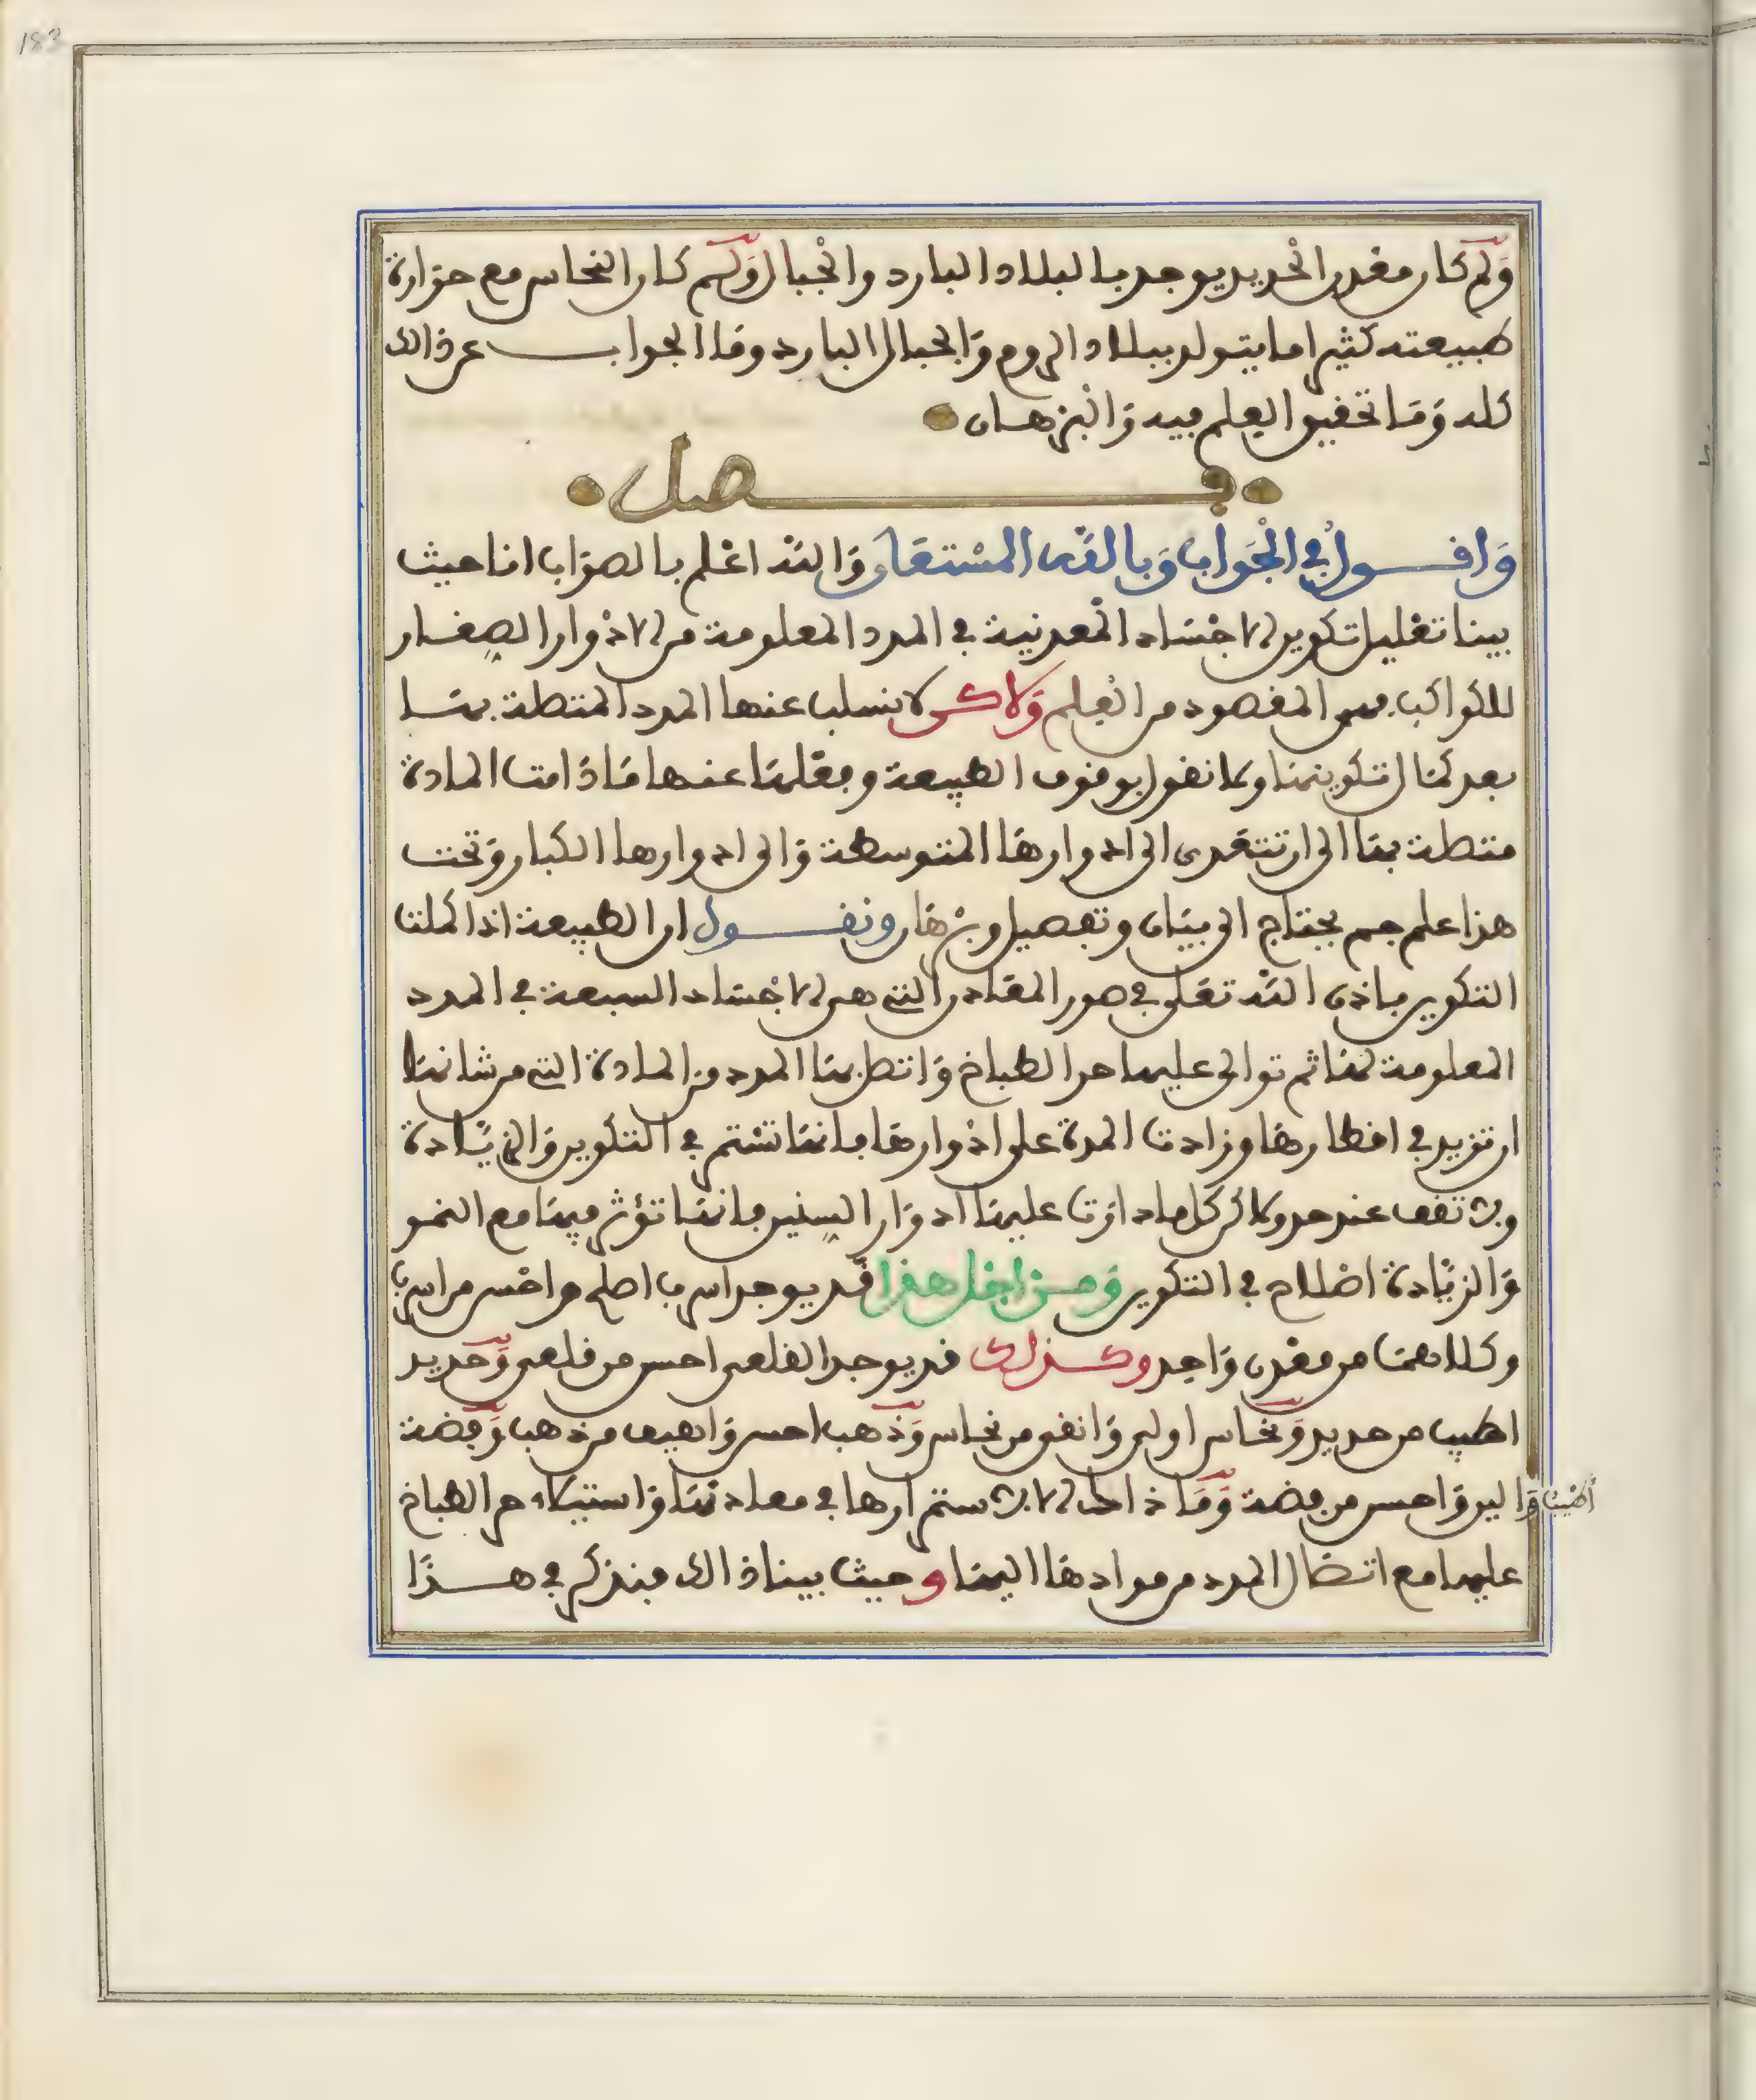 183
وَلِمَ كان معدن الحديد يوجد بالبلاد البارد والجبال وَلِمَ كان النحاس مع حرارة
طبيعته كثيرا ما يتولد ببلاد الروم والجبال البارد وما الجواب عن ذالك
كله وَمَا تحقيق العلم فيه وَالبرهان
فصل
وَاقول في الجَواب وَبالله المستعان وَالله اعلم بالصوَاب انا حيث
بينا تعليل تكوين الاجساد المعدنية في المدد المعلومة من الادوار الصغار
للكواكب فهى المقصود من العلم وَلاكن لا نسلب عنها المدد المتصلة بها
بعد كمال تكوينها ولا نقول بوقوف الطبيعة وفعلها عنها مَا دَامت المادة
متصلة بها الى ان تتعدى الى ادوارها المتوسطة وَالى ادوارها الكبار وَتحت
هذا علم جم يحتاج الى بيَان وتفصيل وبرهَان ونقول ان الطبيعة اذا كملت
التكوين باذن الله تعلى في صور المعادن التى هى الاجساد السبعة في المدد
المعلومة لهَا ثم توالى عليها حر الطباخ وَاتصل بها المدد من المادة التى من شانها
ان تزيد في اقطارها وزادت المدة على ادوارها فانها تستمر في التكوين وَالزيادة
ولا تقف عند حد ولاكن كل ما دارت عليها ادوَار السنين فانها تؤثر فيها مع النمو
وَالزيَادة اصلاح في التكوين وَمن اجل هذا قد يوجد اسرب اصلح واحسن من اسرب
وكلاهما من معدن وَاحد وكذلك قد يوجد القلعى احسن من قلعى وَحديد
اطيب من حديد وَنحاس اولى وَانقى من نحاس وَذهب احسن وَاهيف من ذهب وَفضة
اطيب وَالين وَاحسن من فضة وَمَا ذاك الا لاستمرارها في معادنها وَاستيلاء حر الطباخ
عليها مع اتصال المدد من موادها اليها وحيث بينا ذالك فنذكر في هذَا